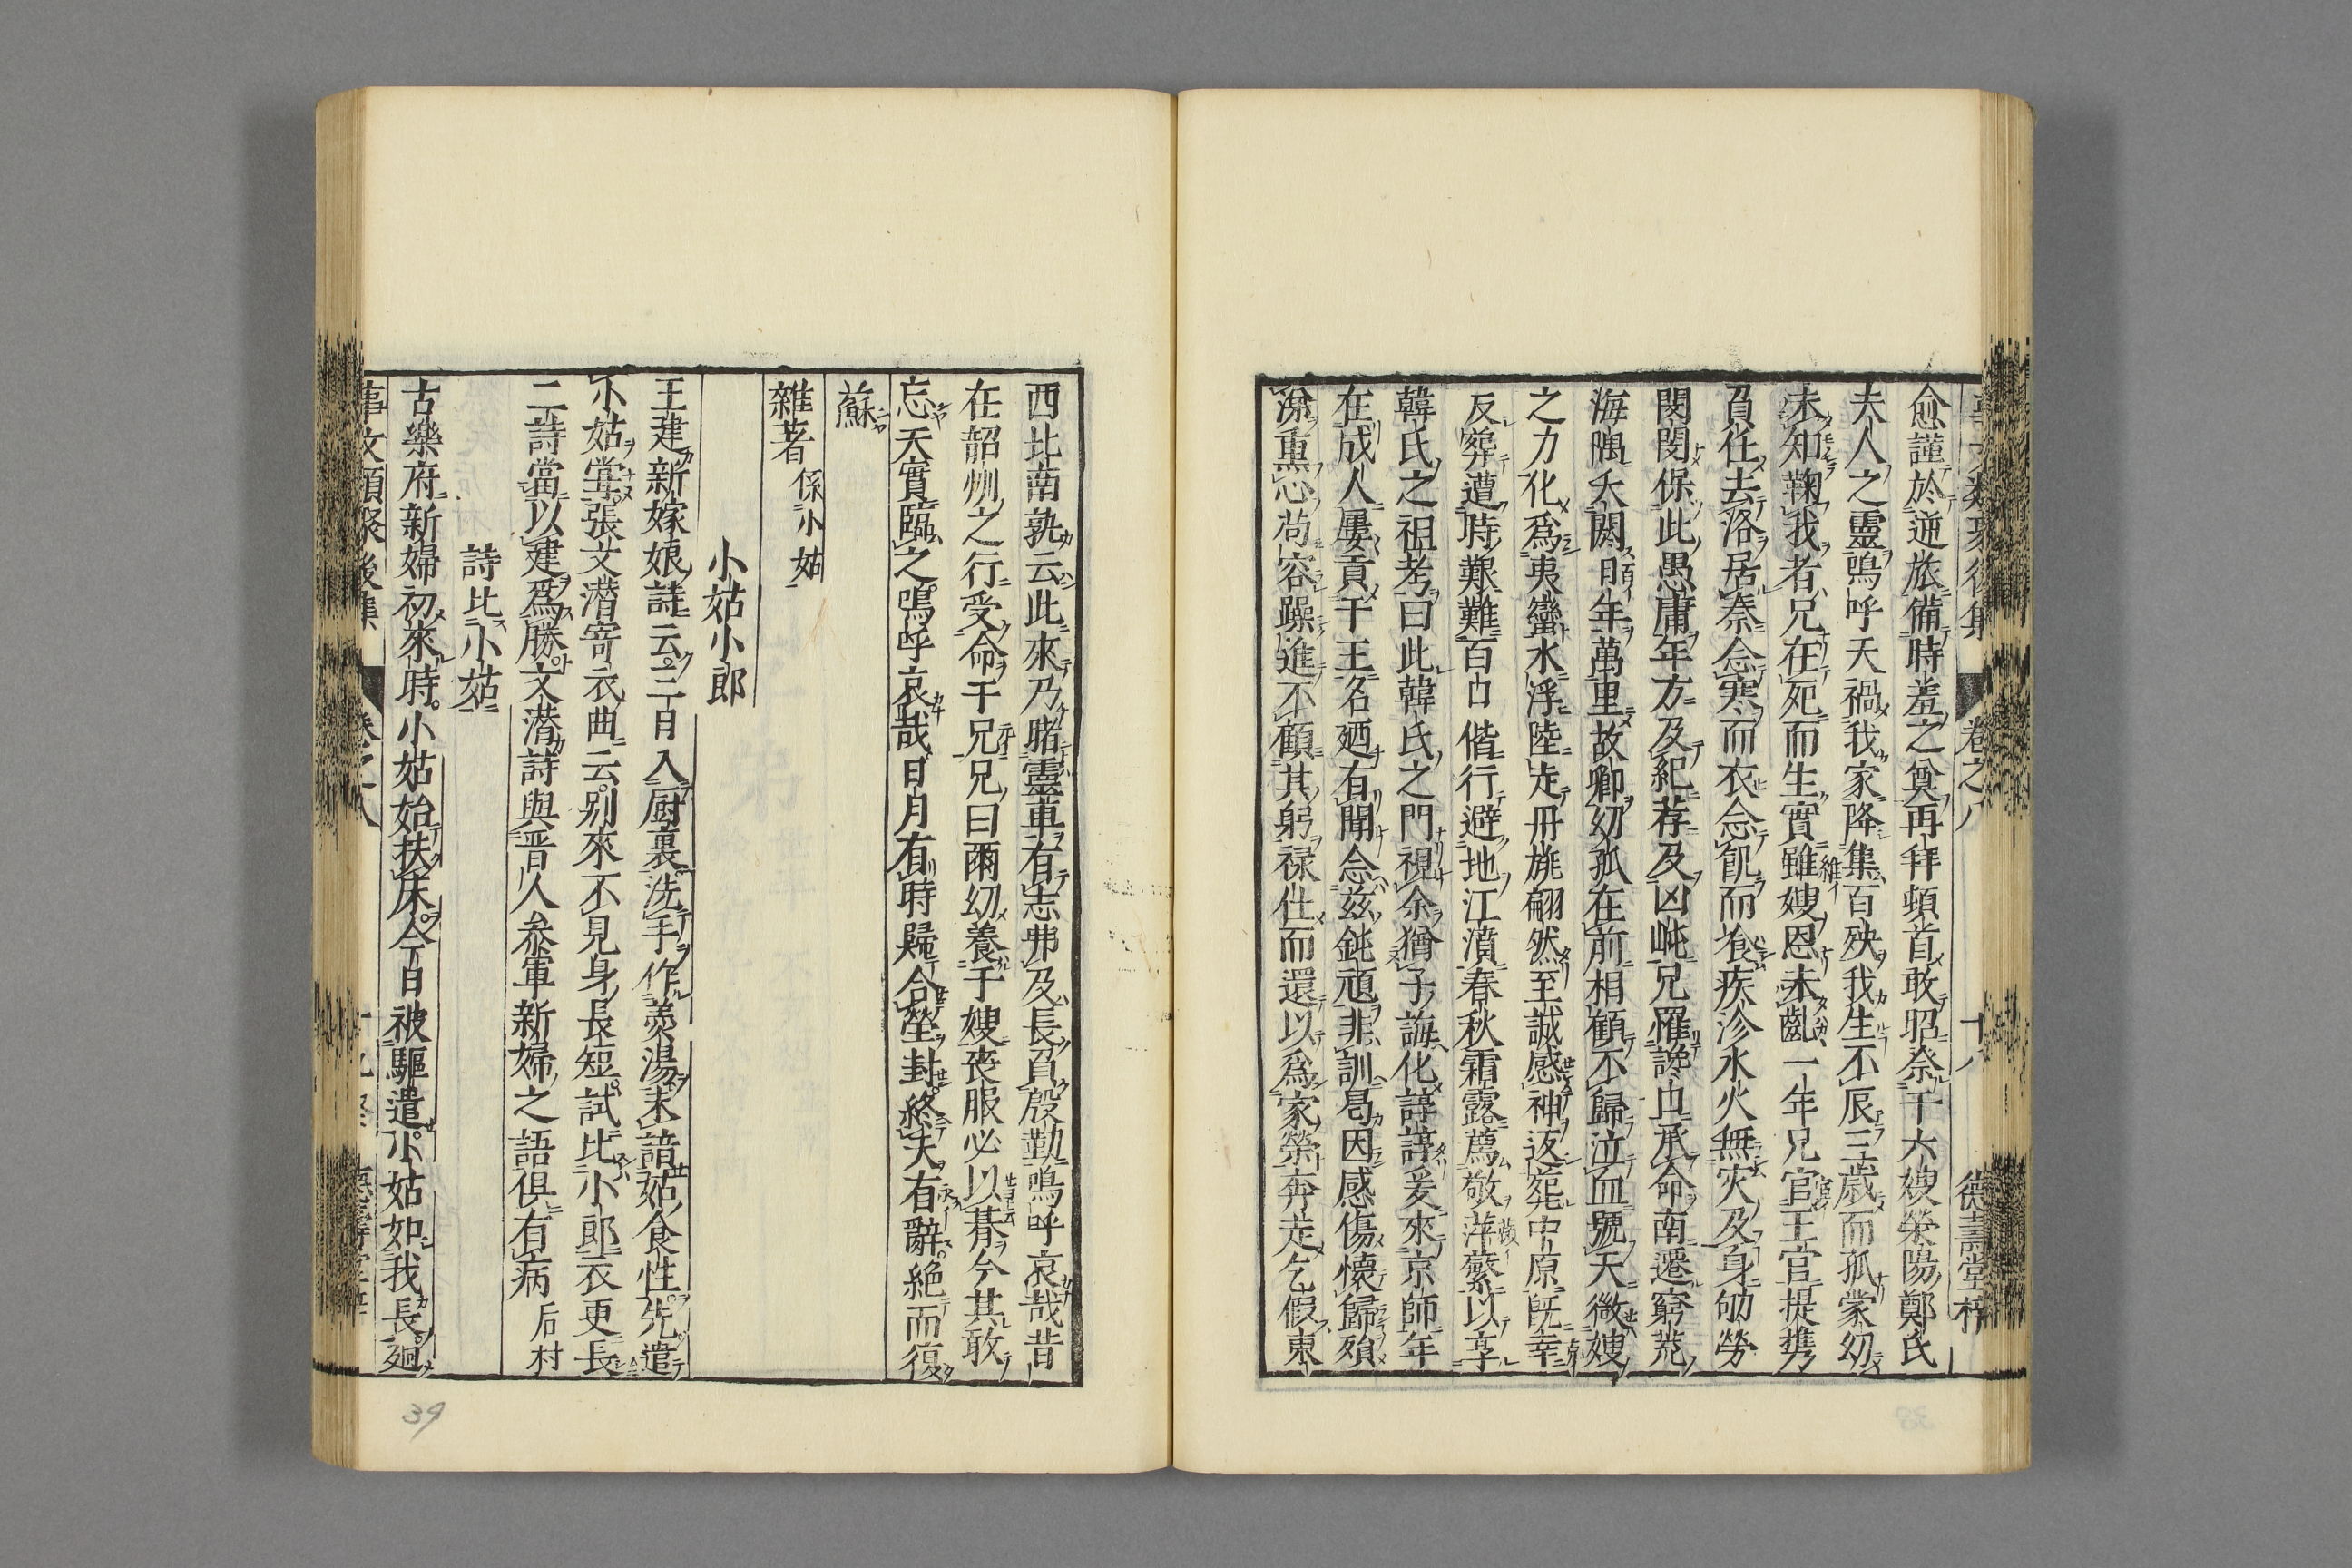 愈謹於逆旅備時羞之奠再拜頓首敢昭祭于六嫂榮陽鄭氏
夫人之靈嗚呼天禍我家降集百殃我生不辰三歳而孤蒙幼
未知鞠我者兄在死而生實雖嫂恩未齓一年兄官王官提携
負任去洛居秦念寒而衣念飢而飡疾沴水火無灾及身劬勞
閔閔保此愚庸年方及紀荐及凶屯兄罹讒口承命南遷窮荒
海隅夭閼日年萬里故鄉幼孤在前相顧不歸泣血號天微嫂
之力化爲夷蠻水浮陸走丹旐翩然至誠感神返葬中原旣幸
反葬遭時艱難百口偕行避地江濆春秋霜露薦敬蘋蘩以享
韓氏之祖考曰此韓氏之門視余猶子誨化諄諄爰來京師年
在成人屢貢于王名廼有聞念玆鈍頑非訓曷因感傷懷歸殞
涕熏心苟容躁進不顧其躬禄仕而還以爲家榮奔走乞假東
卷之八
十八
德壽堂梓
西北南孰云此來乃睹靈車有志弗及長負殷勤嗚呼哀哉昔
在韶州之行受命于兄兄曰爾幼養于嫂喪服必以朞今其敢
忘天實臨之嗚呼哀哉日月有時歸合塋封終天有辭絶而復
蘇
雜著 係小姑
小姑小郎
王建新嫁娘詩云三日入厨裏洗手作羹湯未諳姑食性先遣
小姑嘗張文潜寄衣曲云别來不見身長短試比小郎衣更長
二詩當以建爲勝文潜詩與晋人叅軍新婦之語俱有病 后村
詩比小姑
古樂府新婦初來時小姑始扶床今日被驅遣小姑如我長廻
事文類聚後集
卷之八
39